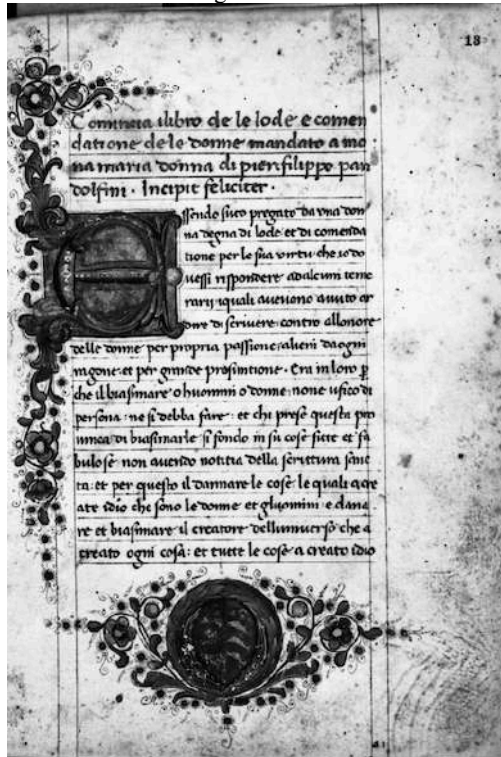 13
Comincia ilibro de le lode e comen
datione de le donne mandato a mo
na maria donna di pier filippo pan
dolfini · Incipit feliciter ·
Essendo suto pregato da vna don
na degna di lode et di comenda
tione per le sua virtu che io do
uessi rispondere ad alcuni teme
rarij iquali aueuono auuto ar
dire di scriuere contro allonore
delle donne per propria passione alieni da ogni
ragone et per grande prosuntione · Era in loro p
che il biasimare o huomini o donne none uficо di
persona : ne si debba fare : et chi prese questa pro
uincia di biasimarle si fondo in su cose fitte et fa
bulose non auendo notitia della scrittura sanc
ta : et per questo il dannare le cose le quali a cre
ate idio che sono le donne et gluomini e dana
re et biasimare il creatore delluniuerso che a
creato ogni cosa : et tutte le cose a creato idio